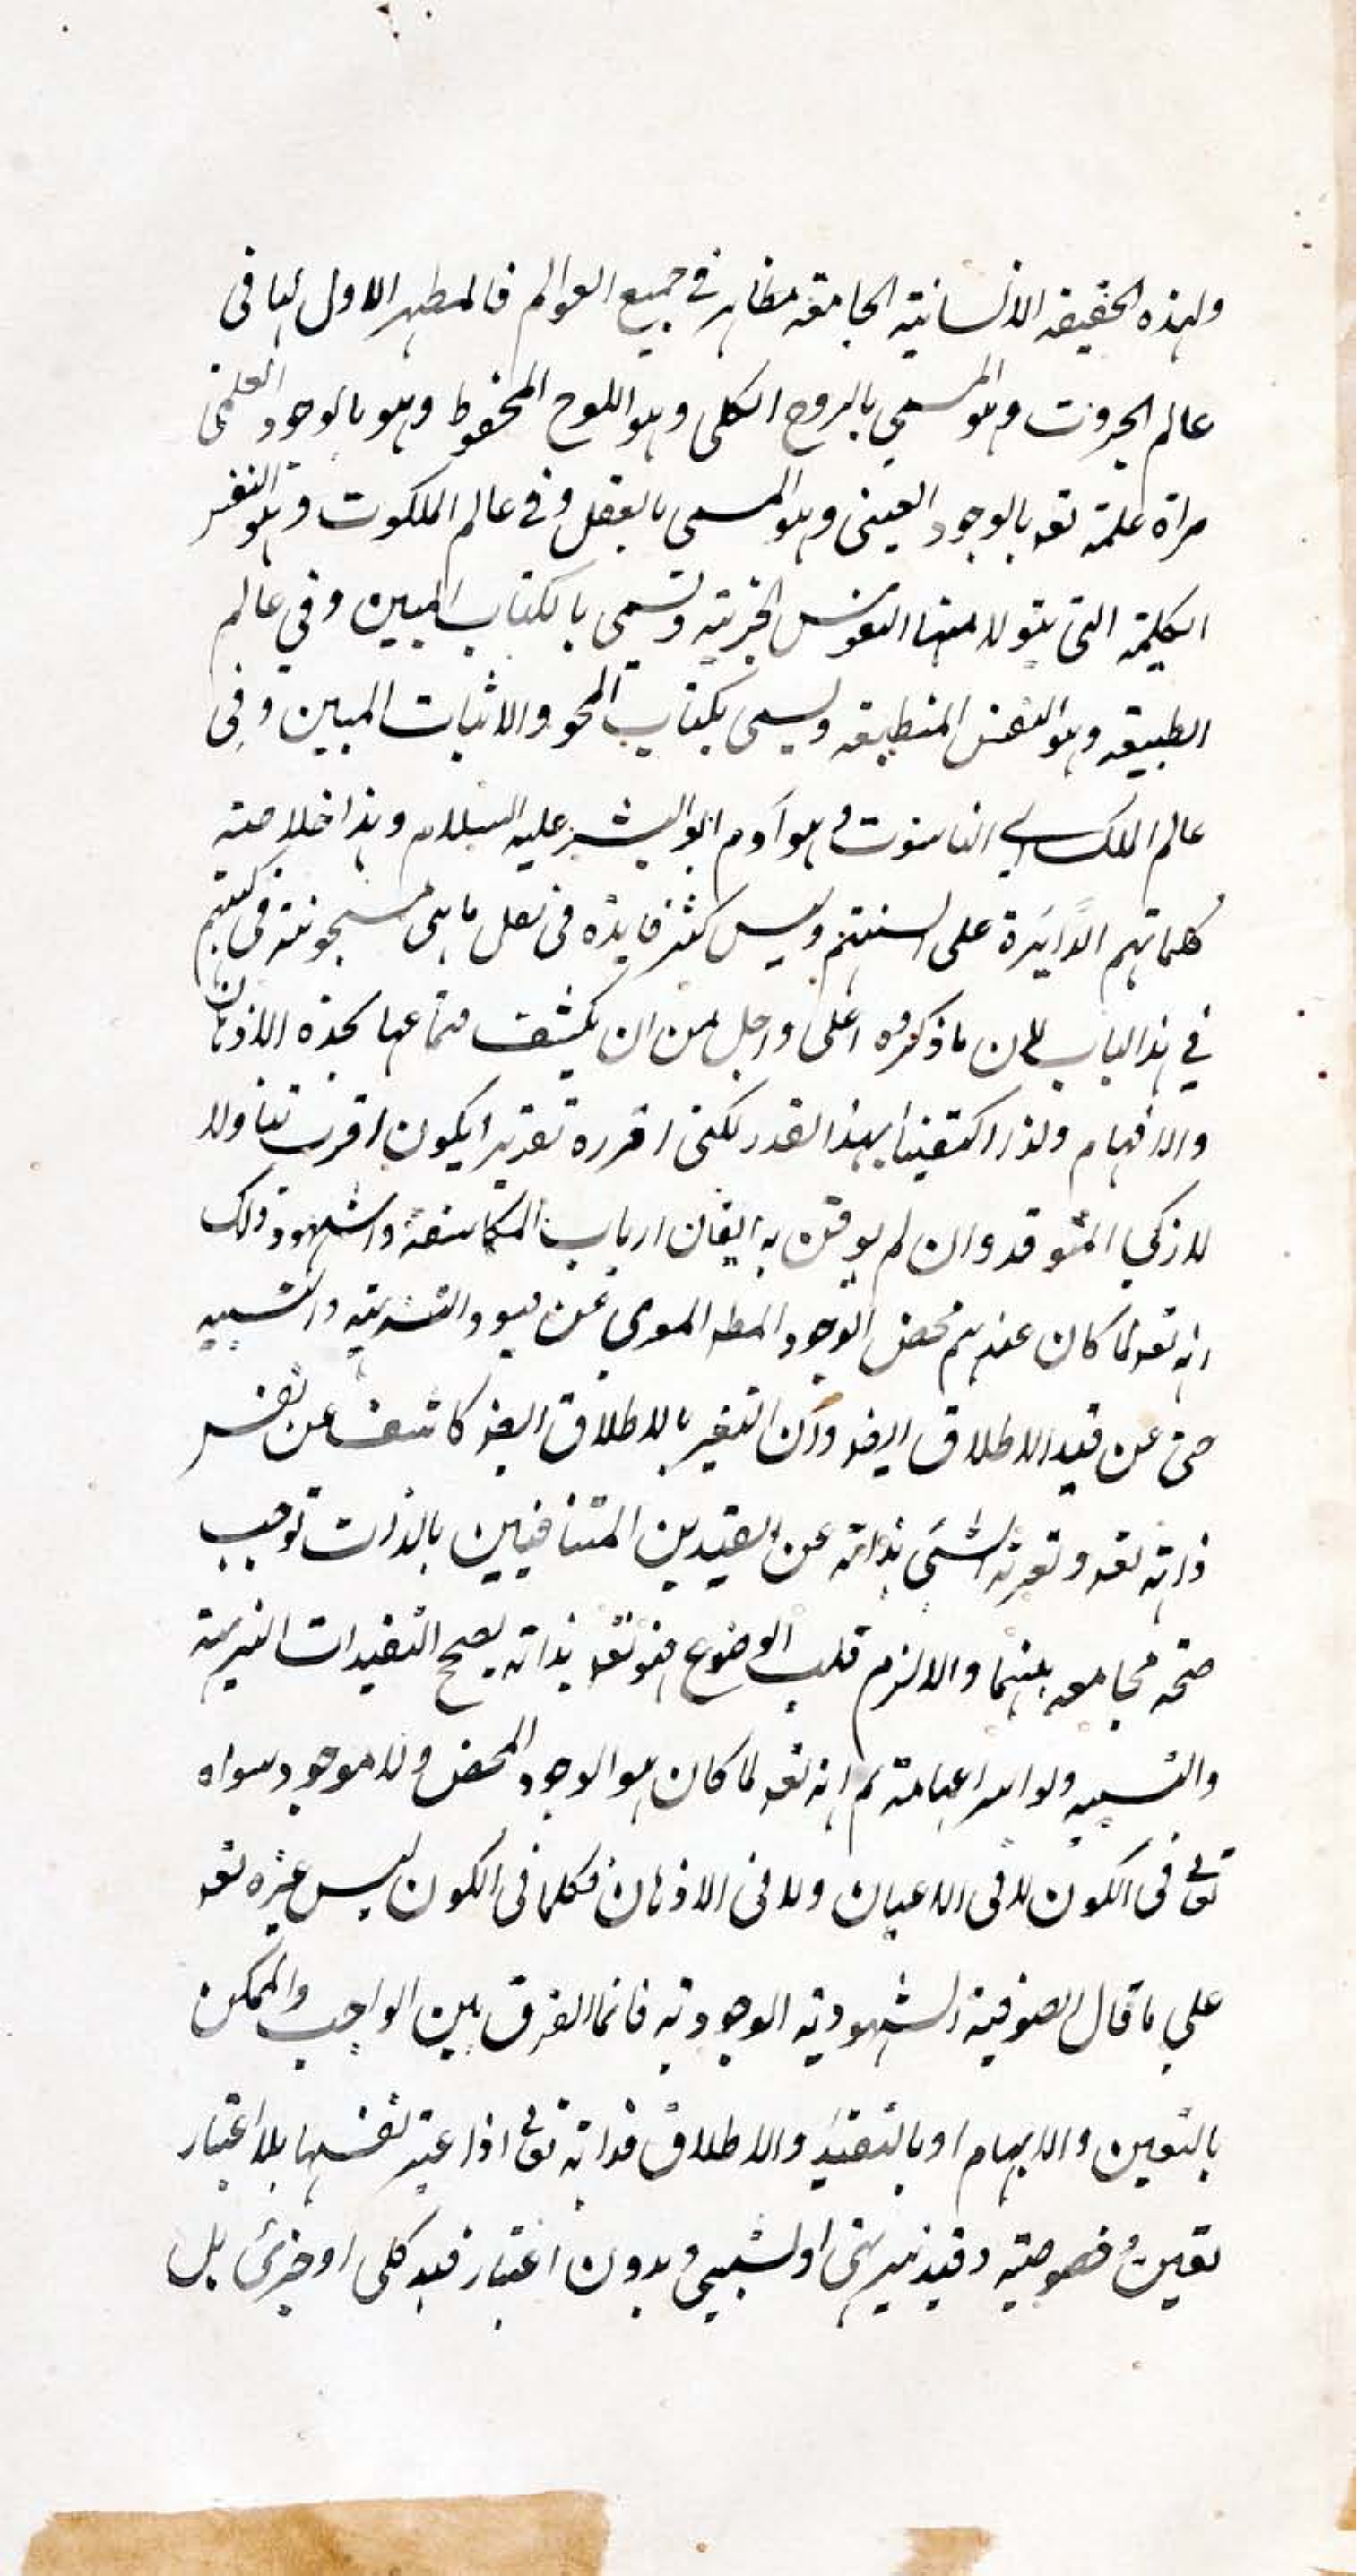 ولهذه الحقيقه الانسانية الجامعه مظاهر في جميع العوالم فالمظهر الاول لها في
عالم الجبروت وهو المسمى بالروح الكلى وهو اللوح المحفوظ وهو بالوجود العلمى
مراة علمه تعـ بالوجود العينى وهو المسمى بالعقل وفى عالم الملكوت وهو النفس
الكلية التى يتولد منها النفوس الجزئية وتسمى بالكتاب المبين وفي عالم
الطبيعه وهو النفس المنطبعه ويسمى بكتاب المحو والاثبات المبين وفى
عالم الملك اي الناسوت وهو آدم ابو البشر عليه السلام وهذا خلاصة
كلماتهم الدائرة على السنتهم وليس كثير فايدة فى نقل ما هى مسجونة فى كتبهم
في هذا الباب لان ما ذكروه اعلى واجل من ان يكشف قناعها بحذه الاذهان
والافهام ولذا اكتفينا بهذا القدر لكنى اقرره تقديرا يكون اقرب تناولا
للذكي المتوقد وان لم يوقن به ايقان ارباب المكاشفة والشهود وذلك
انه تعـ لما كان عندهم محض الوجود المطـ المعرى عن قيود التنزيه والتشبيه
حتى عن قيد الاطلاق ايضـ وان التعبير بالاطلاق ايضـ كاشف عن نفس
ذاته تعـ وتعرية الشئ بذاته عن القيدين المتنافيين بالذات توجب
صحة مجامعه بهنهما والا لزم قلب الوضوع فهو تعـ بذاته يصح التقيدات التنزيهية
والتشبيه ولوا ثم انه تعـ لما كان هو الوجود المحض ولا موجود سواه
تعالى فى الكون لا فى الاعيان ولا فى الاذهان فكلما فى الكون ليس غيره تعـ
على ما قال الصوفية الشهودية الوجودية فانما الفرق بين الواجب والممكن
بالتعين والابهام او بالتقيد والاطلاق فذاته تعالى اذا اعتبر نفسها بلا اعتبار
تعين وخصوصية وقيد تنزيهى او تشبيهى وبدون اعتبار قيد كلى او جزئى بل